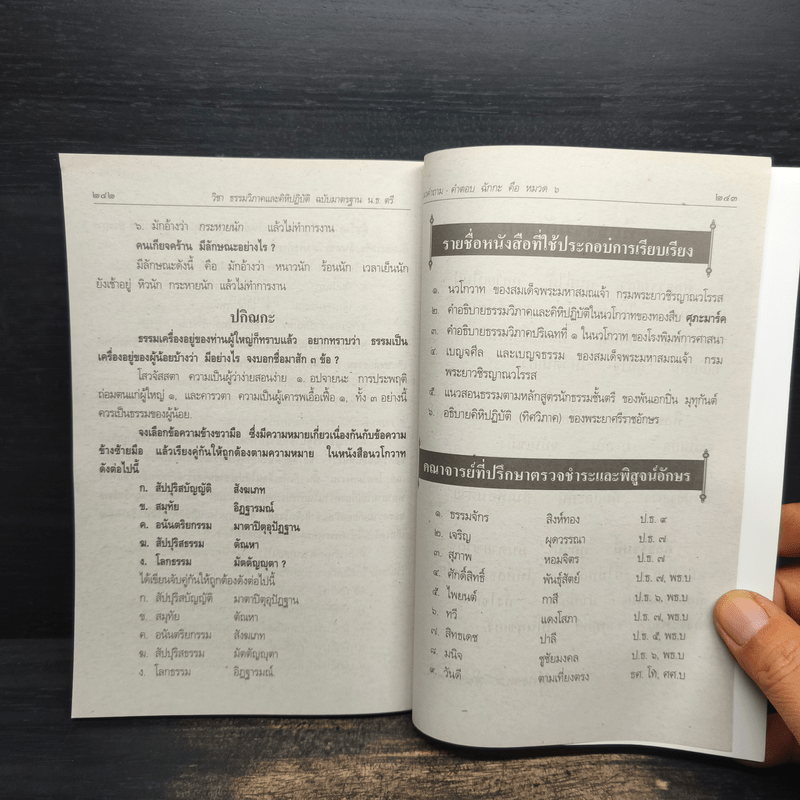 ๒๔๒ วิชา ธรรมวิภาคและคิหิปฏิบัติ ฉบับมาตรฐาน น.ธ. ตรี
๖. มักอ้างว่า กระหายนัก แล้วไม่ทำการงาน
คนเกียจคร้าน มีลักษณะอย่างไร ?
มีลักษณะดังนี้ คือ มักอ้างว่า หนาวนัก ร้อนนัก เวลาเย็นนัก
ยังเช้าอยู่ หิวนัก กระหายนัก แล้วไม่ทำการงาน
ปกิณกะ
ธรรมเครื่องอยู่ของท่านผู้ใหญ่ก็ทราบแล้ว อยากทราบว่า ธรรมเป็น
เครื่องอยู่ของผู้น้อยบ้างว่า มีอย่างไร จงบอกชื่อมาสัก ๓ ข้อ ?
โสวจัสสตา ความเป็นผู้ว่าง่ายสอนง่าย ๑. อปจายนะ การประพฤติ
ถ่อมตนแก่ผู้ใหญ่ ๑, และคารวตา ความเป็นผู้เคารพเอื้อเฟื้อ ๑, ทั้ง ๓ อย่างนี้
ควรเป็นธรรมของผู้น้อย.
จงเลือกข้อความข้างขวามือ ซึ่งมีความหมายเกี่ยวเนื่องกันกับข้อความ
ข้างซ้ายมือ แล้วเรียงคู่กันให้ถูกต้องตามความหมาย ในหนังสือนวโกวาท
ดังต่อไปนี้
ก. สัปปุริสบัญญัติ สังฆเภท
ข. สมุทัย อิฏฐารมณ์
ค. อนันตริยกรรม มาตาปิตุอุปัฏฐาน
ฆ. สัปปุริสธรรม ตัณหา
ง. โลกธรรม มัตตัญญุตา ?
ได้เขียนจับคู่กันให้ถูกต้องดังต่อไปนี้
ก. สัปปุริสบัญญัติ มาตาปิตุอุปัฏฐาน
ข. สมุทัย ตัณหา
ค. อนันตริยกรรม สังฆเภท
ฆ. สัปปุริสธรรม มัตตัญญุตา
ง. โลกธรรม อิฏฐารมณ์
คำถาม - คำตอบ ฉักกะ คือ หมวด ๖ ๒๔๓
รายชื่อหนังสือที่ใช้ประกอบการเรียบเรียง
๑. นวโกวาท ของสมเด็จพระมหาสมณเจ้า กรมพระยาวชิรญาณวโรรส
๒. คำอธิบายธรรมวิภาคและคิหิปฏิบัติในนวโกวาทของทองสืบ ศุภะมาร์ค
๓. คำอธิบายธรรมวิภาคปริเฉทที่ ๑ ในนวโกวาท ของโรงพิมพ์การศาสนา
๔. เบญจศีล และเบญจธรรม ของสมเด็จพระมหาสมณเจ้า กรม
พระยาวชิรญาณวโรรส
๕. แนวสอนธรรมตามหลักสูตรนักธรรมชั้นตรี ของพันเอกปิ่น มุทุกันต์
๖. อธิบายคิหิปฏิบัติ (ทิศวิภาค) ของพระยาศรีราชอักษร
คณาจารย์ที่ปรึกษาตรวจชำระและพิสูจน์อักษร
๑. ธรรมจักร สิงห์ทอง ป.ธ. ๙
๒. เจริญ ผุดวรรณา ป.ธ. ๗
๓. สุภาพ หอมจิตร ป.ธ. ๗
๔. ศักดิ์สิทธิ์ พันธุ์สัตย์ ป.ธ. ๗, พธ.บ
๕. ไพยนต์ กาสี ป.ธ. ๖, พธ.บ
๖. ทวี แดงโสภา ป.ธ. ๗, พธ.บ
๗. สิทธเดช ปาลี ป.ธ. ๕, พธ.บ
๘. มนิจ ชูชัยมงคล ป.ธ. ๖, พธ.บ
๙. วันดี ตามเที่ยงตรง ธศ. โท, ศศ.บ